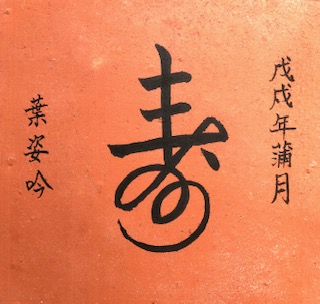 戊戌年蒲月
寿
葉姿吟